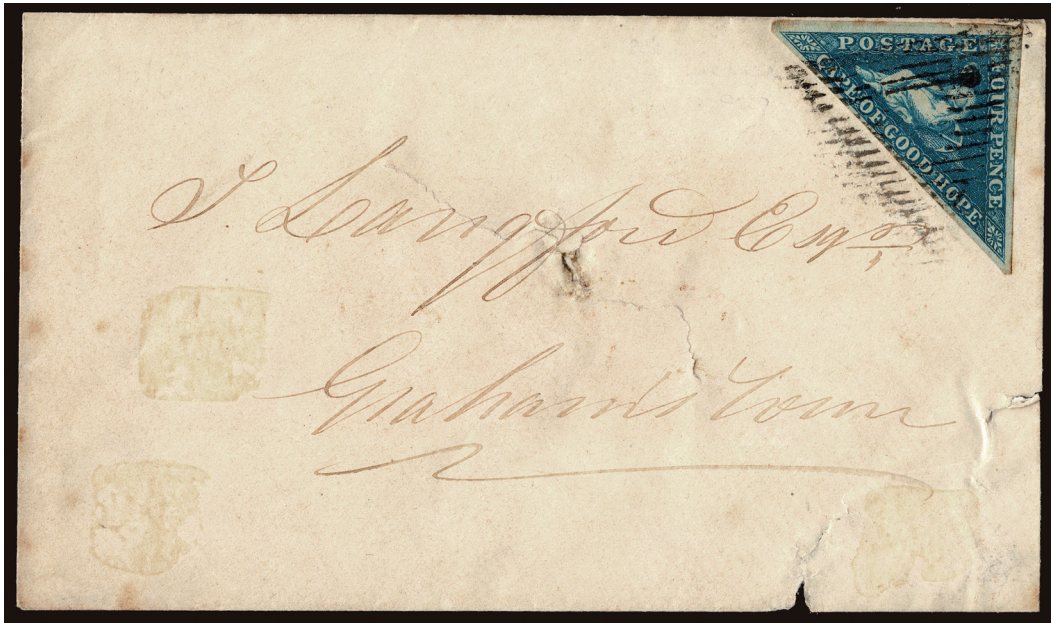 POSTAGE
FOUR PENCE
CAPE OF GOOD HOPE
T Langford Esqre
Graham's Town